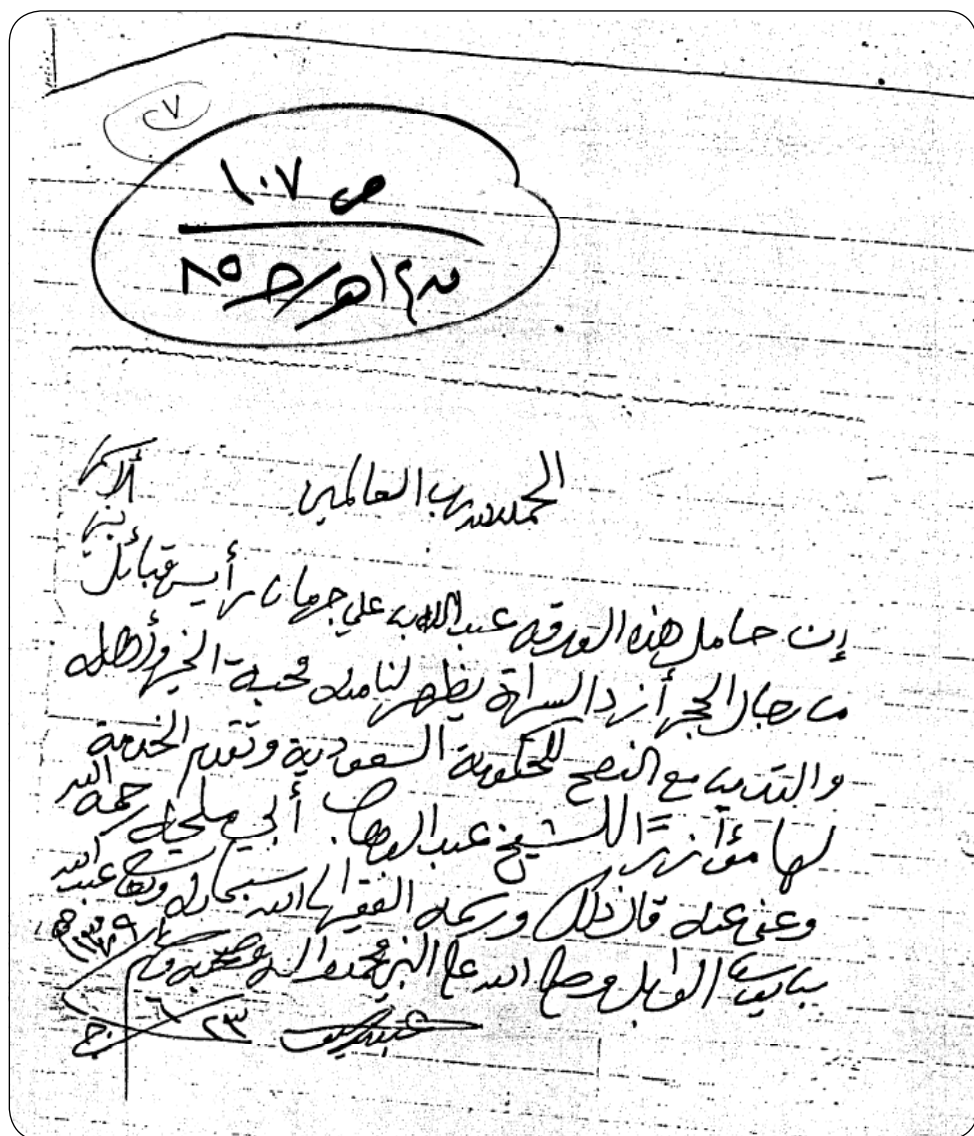 ٧
ص ١٠٧
الحمد لله رب العالمين
إن حامل هذه الورقه عبد الله بن علي جرمان رأيس قبائل
بني
الأسمر
من رجال الحجر أزد السراة يظهر لنا منه محبة الخير وأهله
والتدين مع النصح للحكومة السعودية وتقديم الخدمة
لها مؤازرًا للشيخ عبد الوهاب أبي ملحه رحمه الله
وعفى عنه قال ذلك ورسمه الفقير إلى الله سبحانه وتعالى عبد الله
بن يوسف الوابل وصلى الله على النبي محمد وآله وصحبه وسلم
٢٣